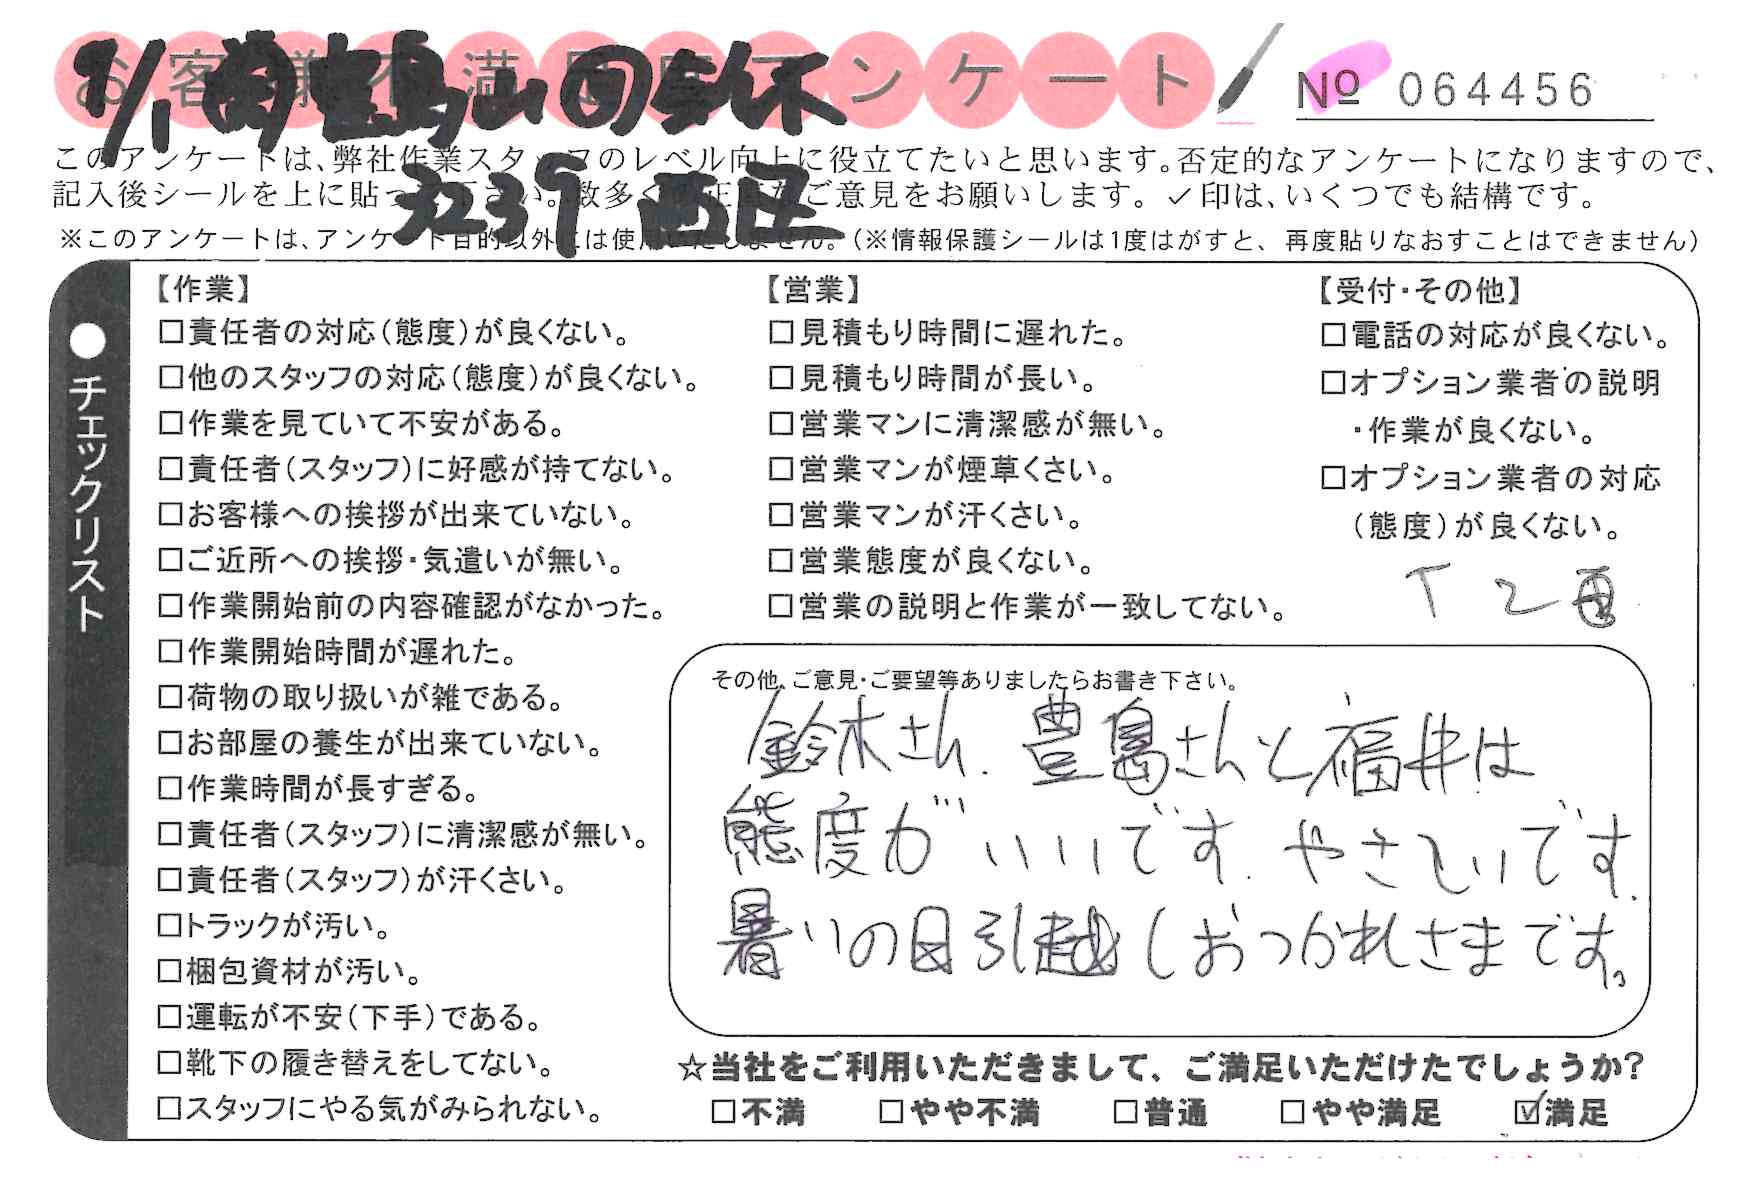 お客様不満足度アンケート No 064456
9/1
3239 西区
このアンケートは、弊社作業スタッフのレベル向上に役立てたいと思います。否定的なアンケートになりますので、
記入後シールを上に貼って下さい。数多くの正直なご意見をお願いします。✓印は、いくつでも結構です。
※このアンケートは、アンケート目的以外には使用いたしません。(※情報保護シールは1度はがすと、再度貼りなおすことはできません)
●チェックリスト
【作業】
□責任者の対応(態度)が良くない。
□他のスタッフの対応(態度)が良くない。
□作業を見ていて不安がある。
□責任者(スタッフ)に好感が持てない。
□お客様への挨拶が出来ていない。
□ご近所への挨拶・気遣いが無い。
□作業開始前の内容確認がなかった。
□作業開始時間が遅れた。
□荷物の取り扱いが雑である。
□お部屋の養生が出来ていない。
□作業時間が長すぎる。
□責任者(スタッフ)に清潔感が無い。
□責任者(スタッフ)が汗くさい。
□トラックが汚い。
□梱包資材が汚い。
□運転が不安(下手)である。
□靴下の履き替えをしてない。
□スタッフにやる気がみられない。
【営業】
□見積もり時間に遅れた。
□見積もり時間が長い。
□営業マンに清潔感が無い。
□営業マンが煙草くさい。
□営業マンが汗くさい。
□営業態度が良くない。
□営業の説明と作業が一致してない。
【受付・その他】
□電話の対応が良くない。
□オプション業者の説明
・作業が良くない。
□オプション業者の対応
(態度)が良くない。
その他、ご意見・ご要望等ありましたらお書き下さい。
鈴木さん、豊島さんと福井は
態度がいいです。やさしいです。
暑いの日引越しおつかれさまです。
☆当社をご利用いただきまして、ご満足いただけたでしょうか?
□不満 □やや不満 □普通 □やや満足 ☑満足